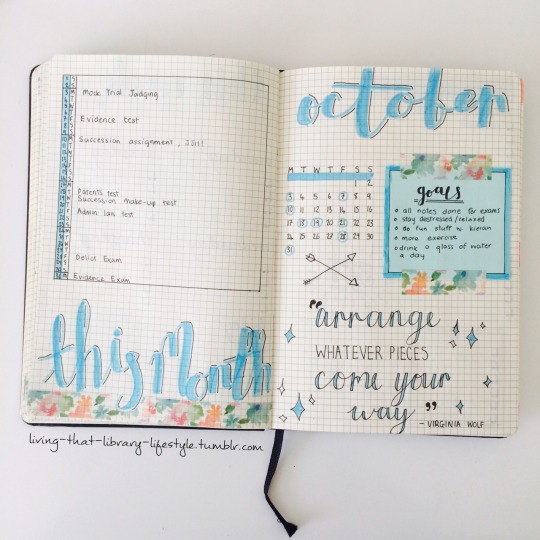 S
S
M
T
W
T
F
Mock Trial Judging
Evidence test
Succession assignment, 22!!
Patents test
Succession make-up test
Admin law test
Delict Exam
Evidence Exam
this Month
living-that-library-lifestyle.tumblr.com
october
M T W T F S S
1 2
3 4 5 6 7 8 9
10 11 12 13 14 15 16
17 18 19 20 21 22 23
24 25 26 27 28 29 30
31
goals
all notes done for exams
stay destressed/relaxed
do fun stuff w. kieran
more exercise
drink a glass of water
a day
"arrange
WHATEVER PIECES
come your
way"
- VIRGINIA WOLF